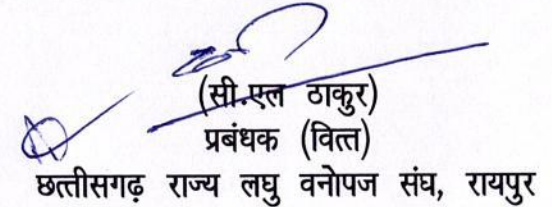 (सी.एल ठाकुर)
प्रबंधक (वित्त)
छत्तीसगढ़ राज्य लघु वनोपज संघ, रायपुर